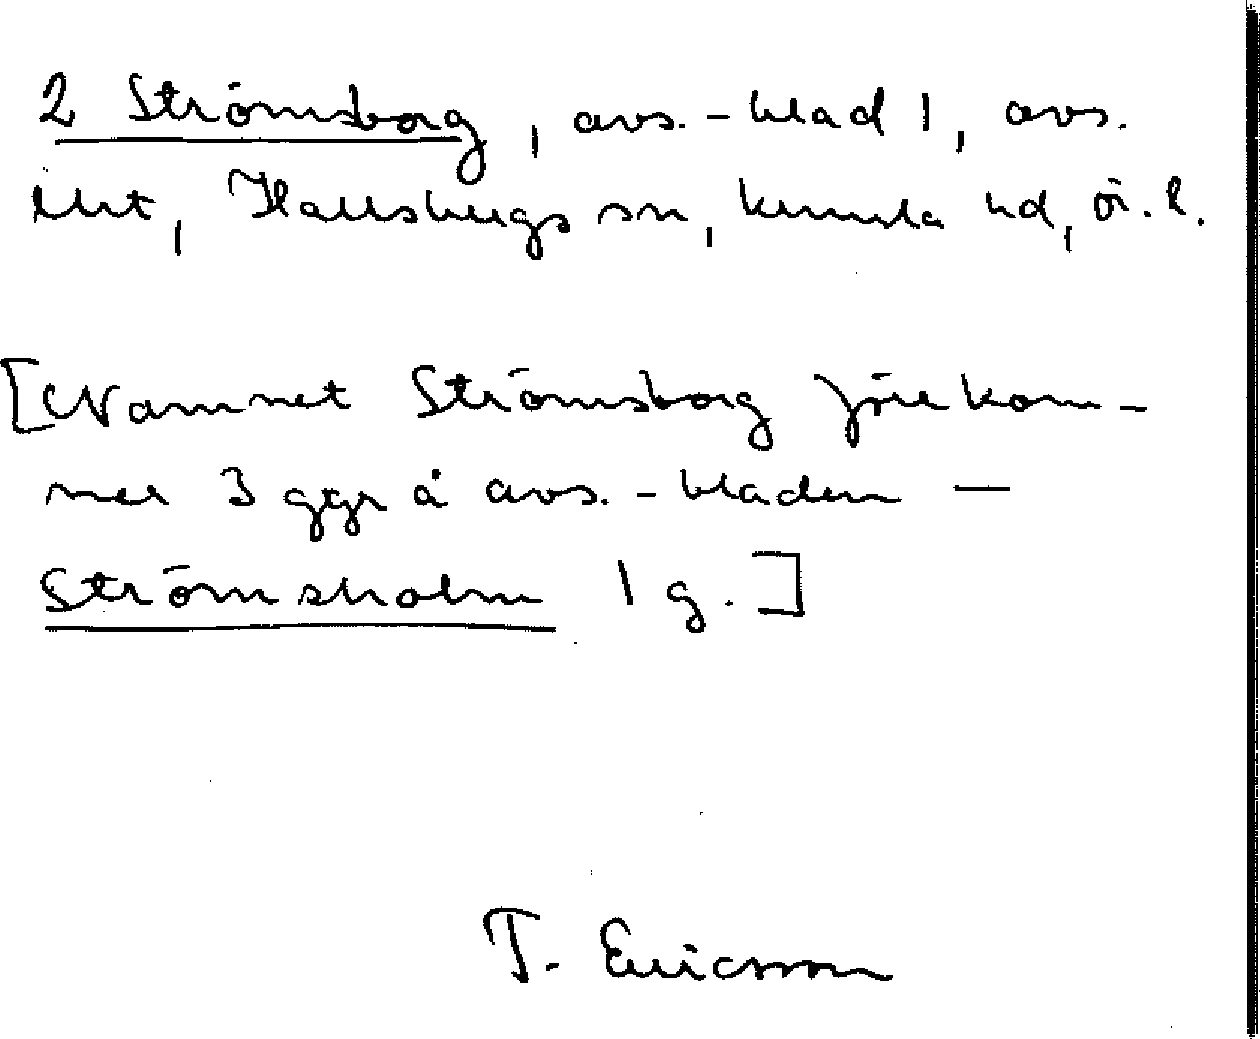 2 Strömsborg, avs.-blad 1, avs.
utlt, Hallsbergs sn, Kumla hd, Ör. l.
[Namnet Strömsborg förekom-
mer 3 ggr å avs.-bladen —
Strömsholm 1 g.]
T. Ericsson